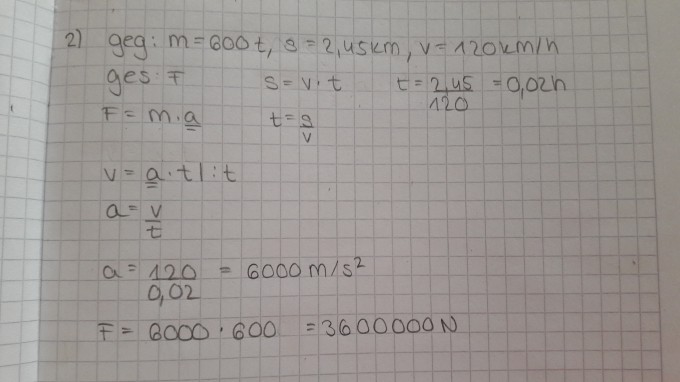 2) geg: m = 600t, s = 2,45km, v = 120km/h
ges: F s = v · t t = 2,45/120 = 0,02h
F = m · a t = s/v
v = a · t | : t
a = v/t
a = 120/0,02 = 6000 m/s²
F = 6000 · 600 = 3600000N